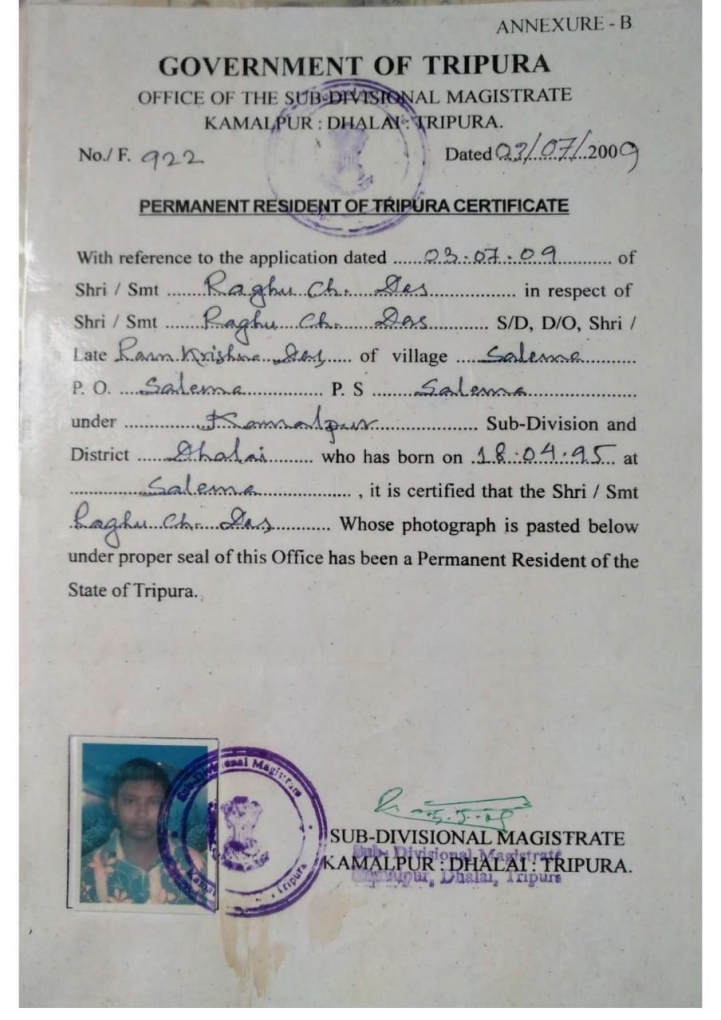 ANNEXURE - B
GOVERNMENT OF TRIPURA
OFFICE OF THE SUB-DIVISIONAL MAGISTRATE
KAMALPUR : DHALAI : TRIPURA.
No./ F. 922 Dated 03/07/2009
PERMANENT RESIDENT OF TRIPURA CERTIFICATE
With reference to the application dated ......03.07.09............ of
Shri / Smt ......Raghu Ch. Das................ in respect of
Shri / Smt ......Raghu Ch. Das.......... S/D, D/O, Shri /
Late Ram Krishna Das..... of village .....Salema..........
P. O. ...Salema............ P. S ........Salema....................
under ..............Kamalpur.................... Sub-Division and
District .....Dhalai......... who has born on .18.04.95 at
.............Salema.................. , it is certified that the Shri / Smt
Raghu Ch. Das.......... Whose photograph is pasted below
under proper seal of this Office has been a Permanent Resident of the
State of Tripura.
Sub-Divisional Magistrate
Tripura
SUB-DIVISIONAL MAGISTRATE
KAMALPUR : DHALAI : TRIPURA.
Sub- Divisional Magistrate
Kamalpur, Dhalai, Tripura